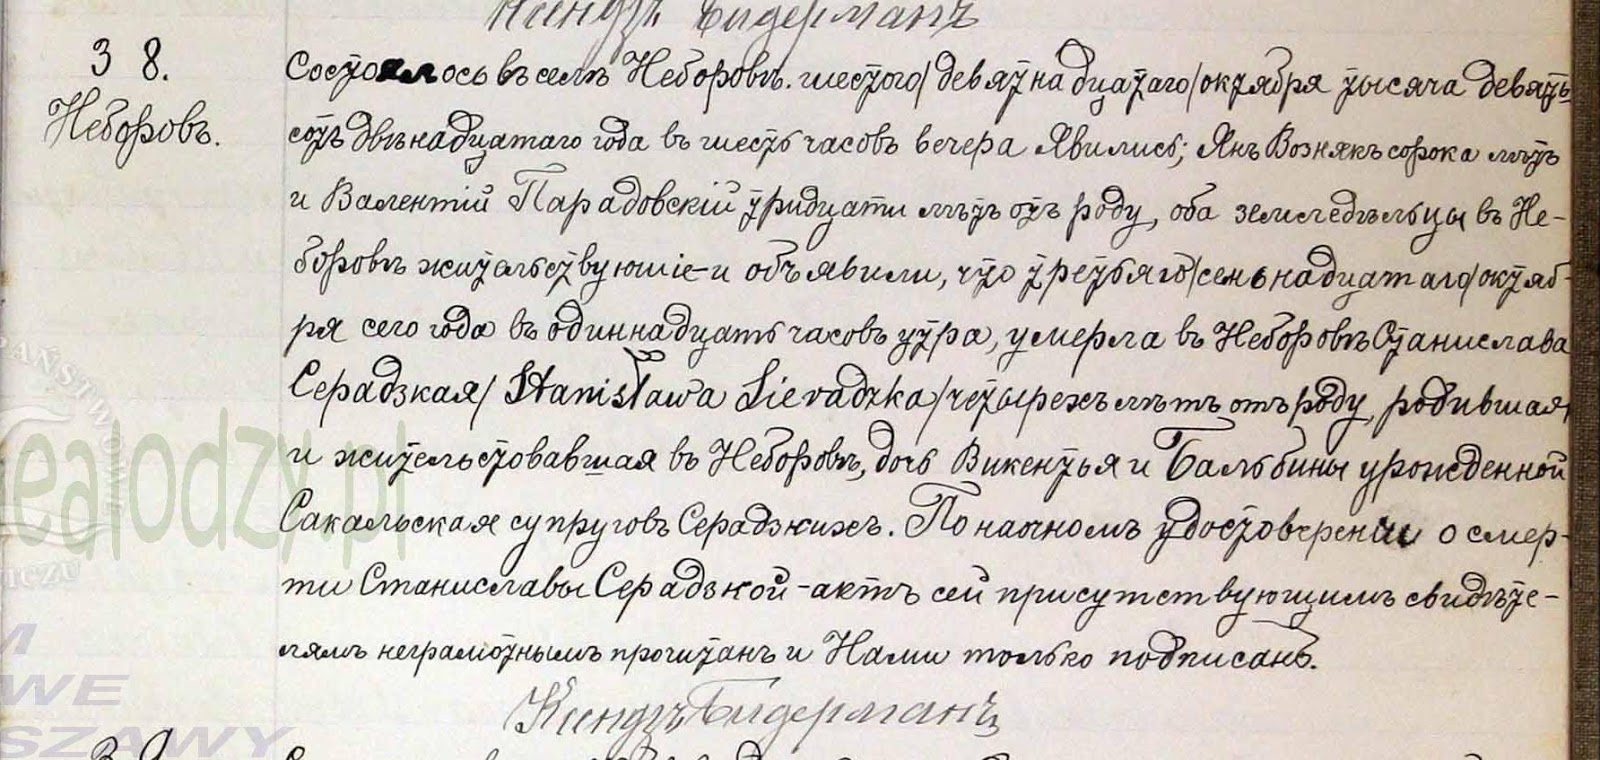 Ксендзъ Бидерманъ
38.
Неборовъ.
Состоялось въ селѣ Неборовѣ. шестого/девятнадцатаго/октября тысяча девять-
сотъ двѣнадцатаго года въ шесть часовъ вечера Явились; Янъ Вознякъ сорока лѣтъ
и Валентій Парадовскій тридцати лѣтъ отъ роду, оба земледѣльцы въ Не-
боровѣ жительствующіе и объявили, что третьяго/семьнадцатаго/октяб-
ря сего года въ одиннадцать часовъ утра, умерла въ Неборовѣ Станислава
Серадзкая/Stanisława Sieradzka/четырехъ лѣтъ отъ роду, родившая
и жительстовавшая въ Неборовѣ, дочь Викентья и Бальбины урожденной
Сакальская супруговъ Серадзкихъ. По наочномъ удостоверении о смер-
ти Станиславы Серадзкой-актъ сей присутствующимъ свидѣте-
лямъ неграмотнымъ прочитанъ и Нами только подписанъ.
Ксендзъ Бидерманъ
39
ealodzy.pl
PAŃSTWOWE
WE
SZAWY